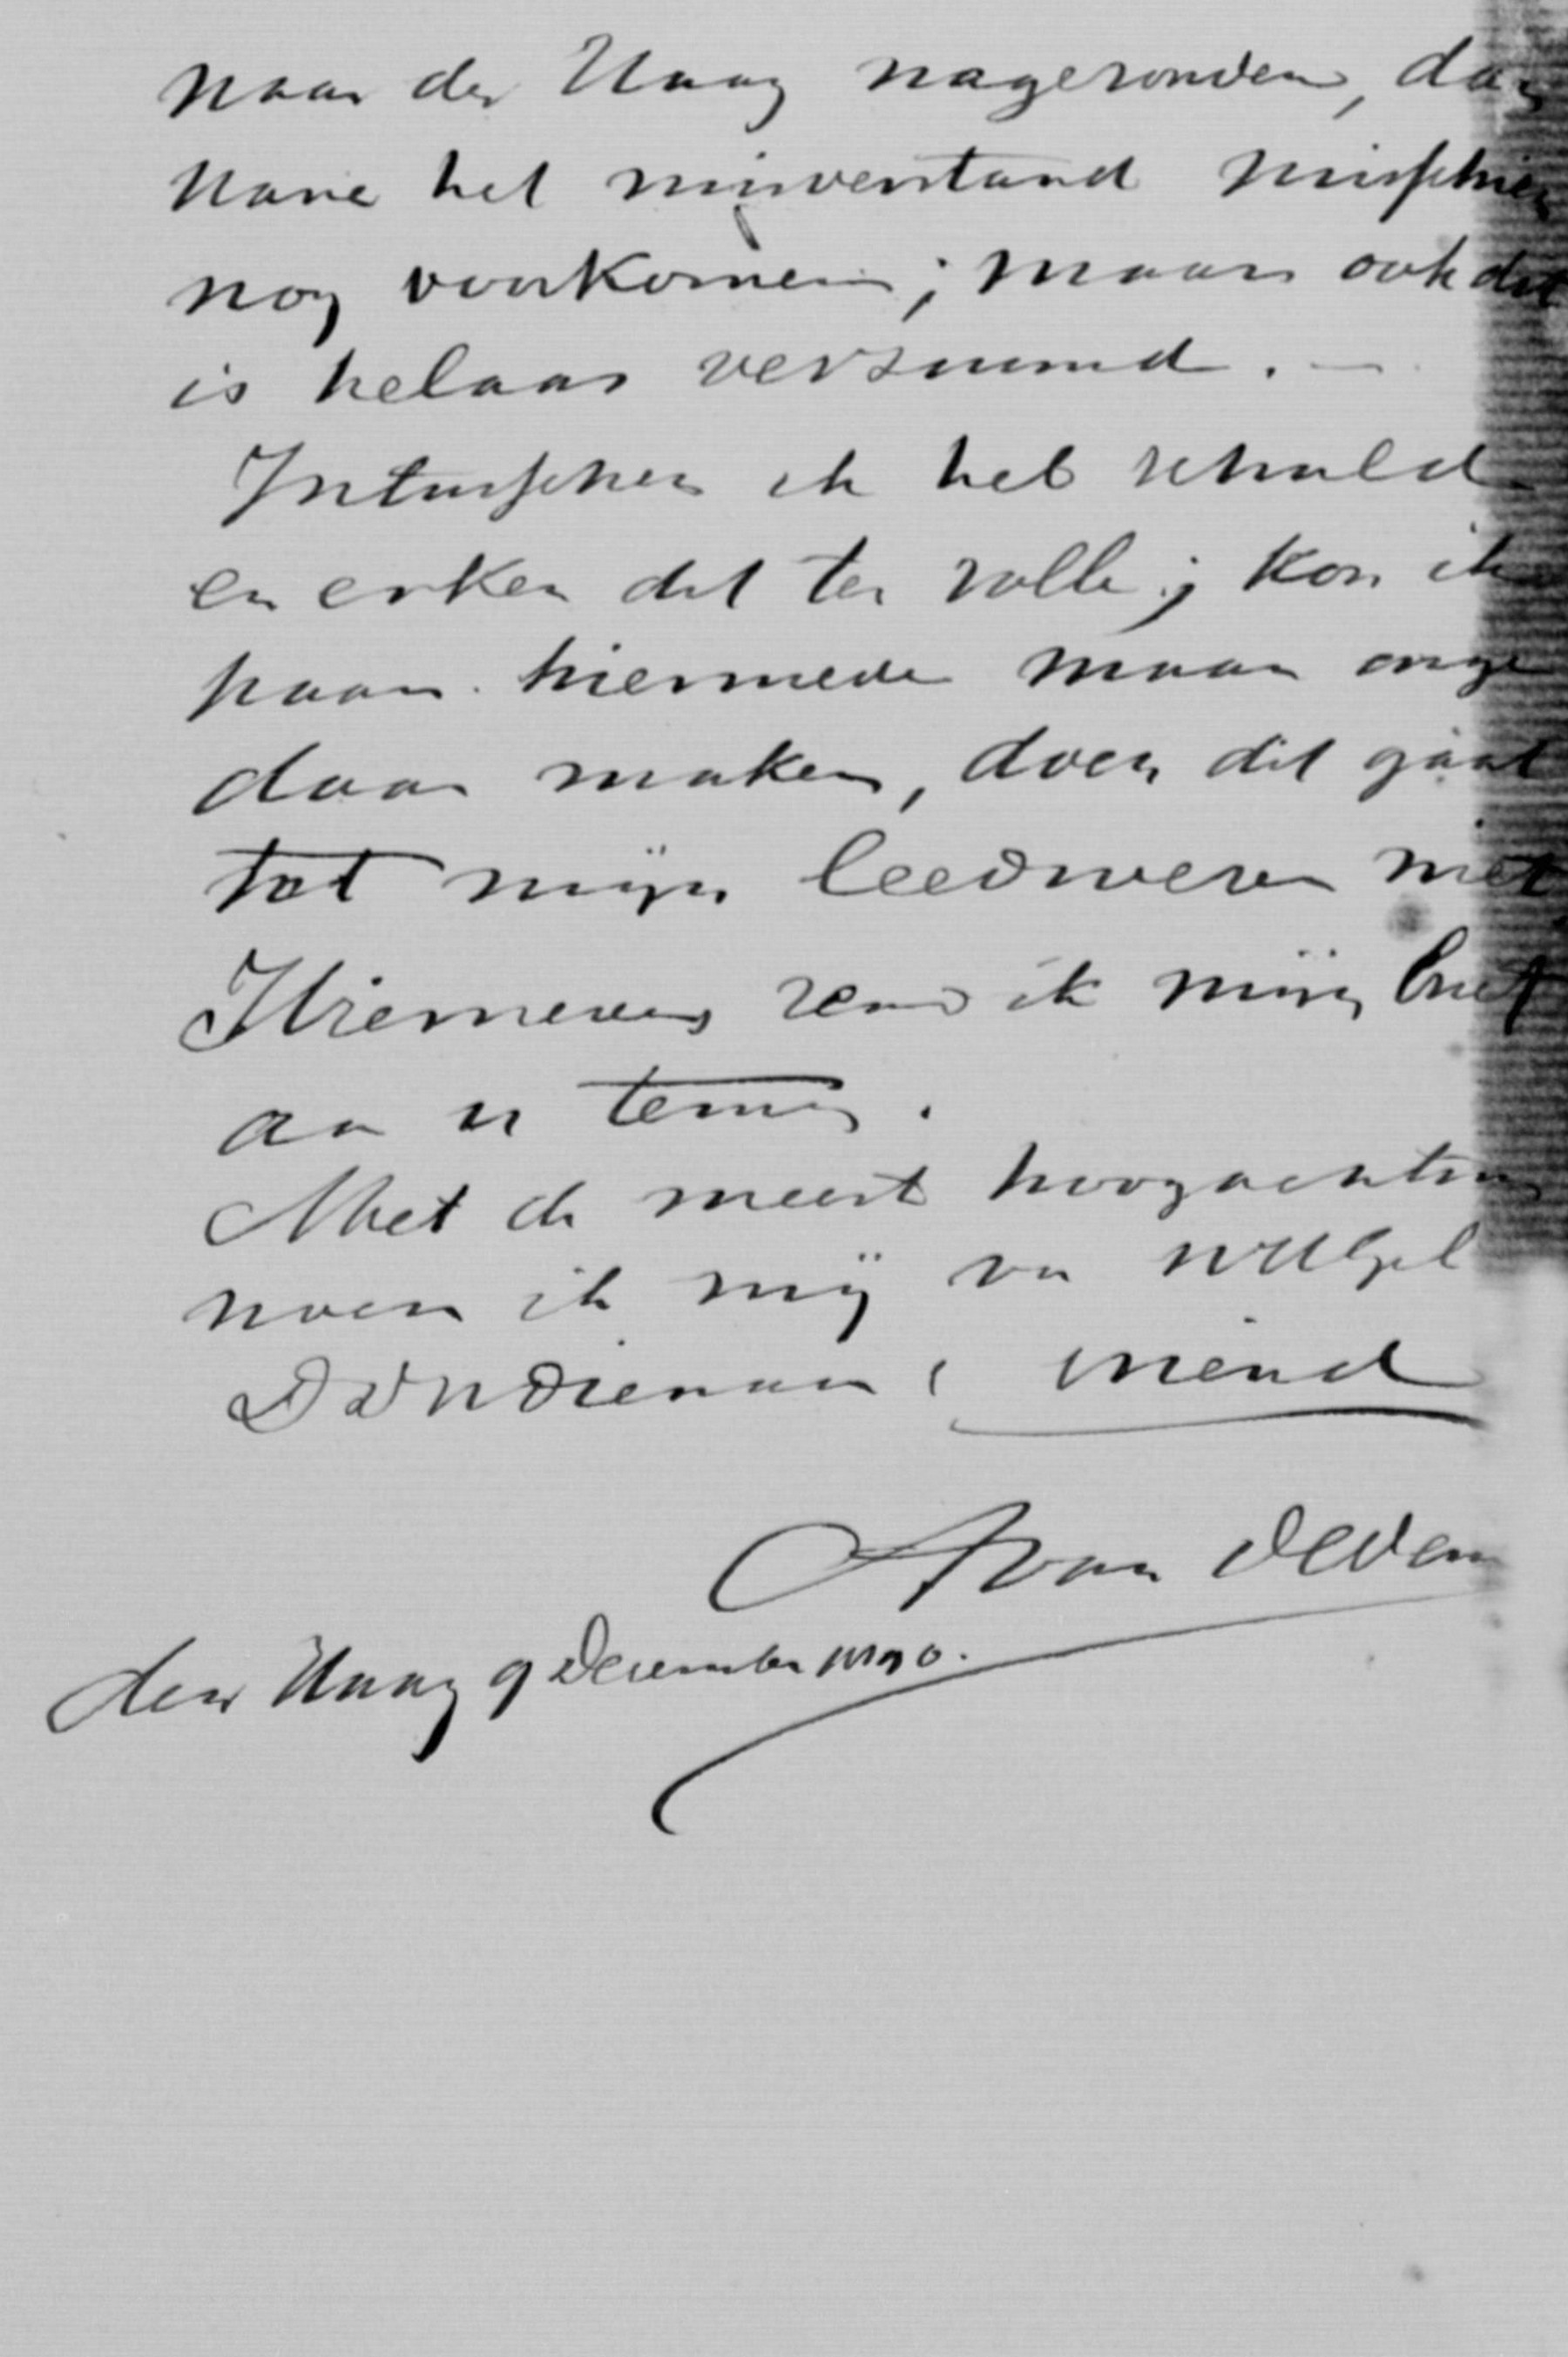 naar den Haag nagezonden, dan
ware het misverstand misschien
nog voorkomen; maar ook dat
is helaas verzuimd. —
Intusschen ik heb schuld
en erken dit ten volle; kon ik
haar hiermede maar onge
daan maken, doch dit gaat
tot mijn leedwezen niet
Hiernevens zend ik mijn brief
aan u terug.
Met de meest hoogachting
noem ik mij van UWelgel
DWDienaar & vriend
A van Dedem
den Haag 9 December 1890.